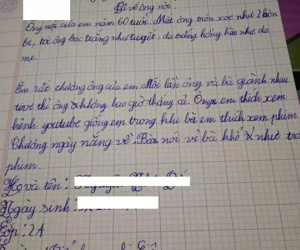 Tả về ông nội.
Ông nội của em năm 60 tuổi. Mắt ông tròn xoe như 2 hòn
bi, tóc ông bạc trắng như tuyết, da trắng hồng hào như da
me.
Em rất thương ông của em. Mỗi lần ông và bà giành nhau
tivi thì ông không bao giờ thắng cả. Ông em thích xem
kênh youtube giống em trong khi bà em thích xem phim
Chương ngày nắng về. Bà nói về bà khổ như trong
phim.
Họ và tên:
Ngày sinh:
Lớp: 2A